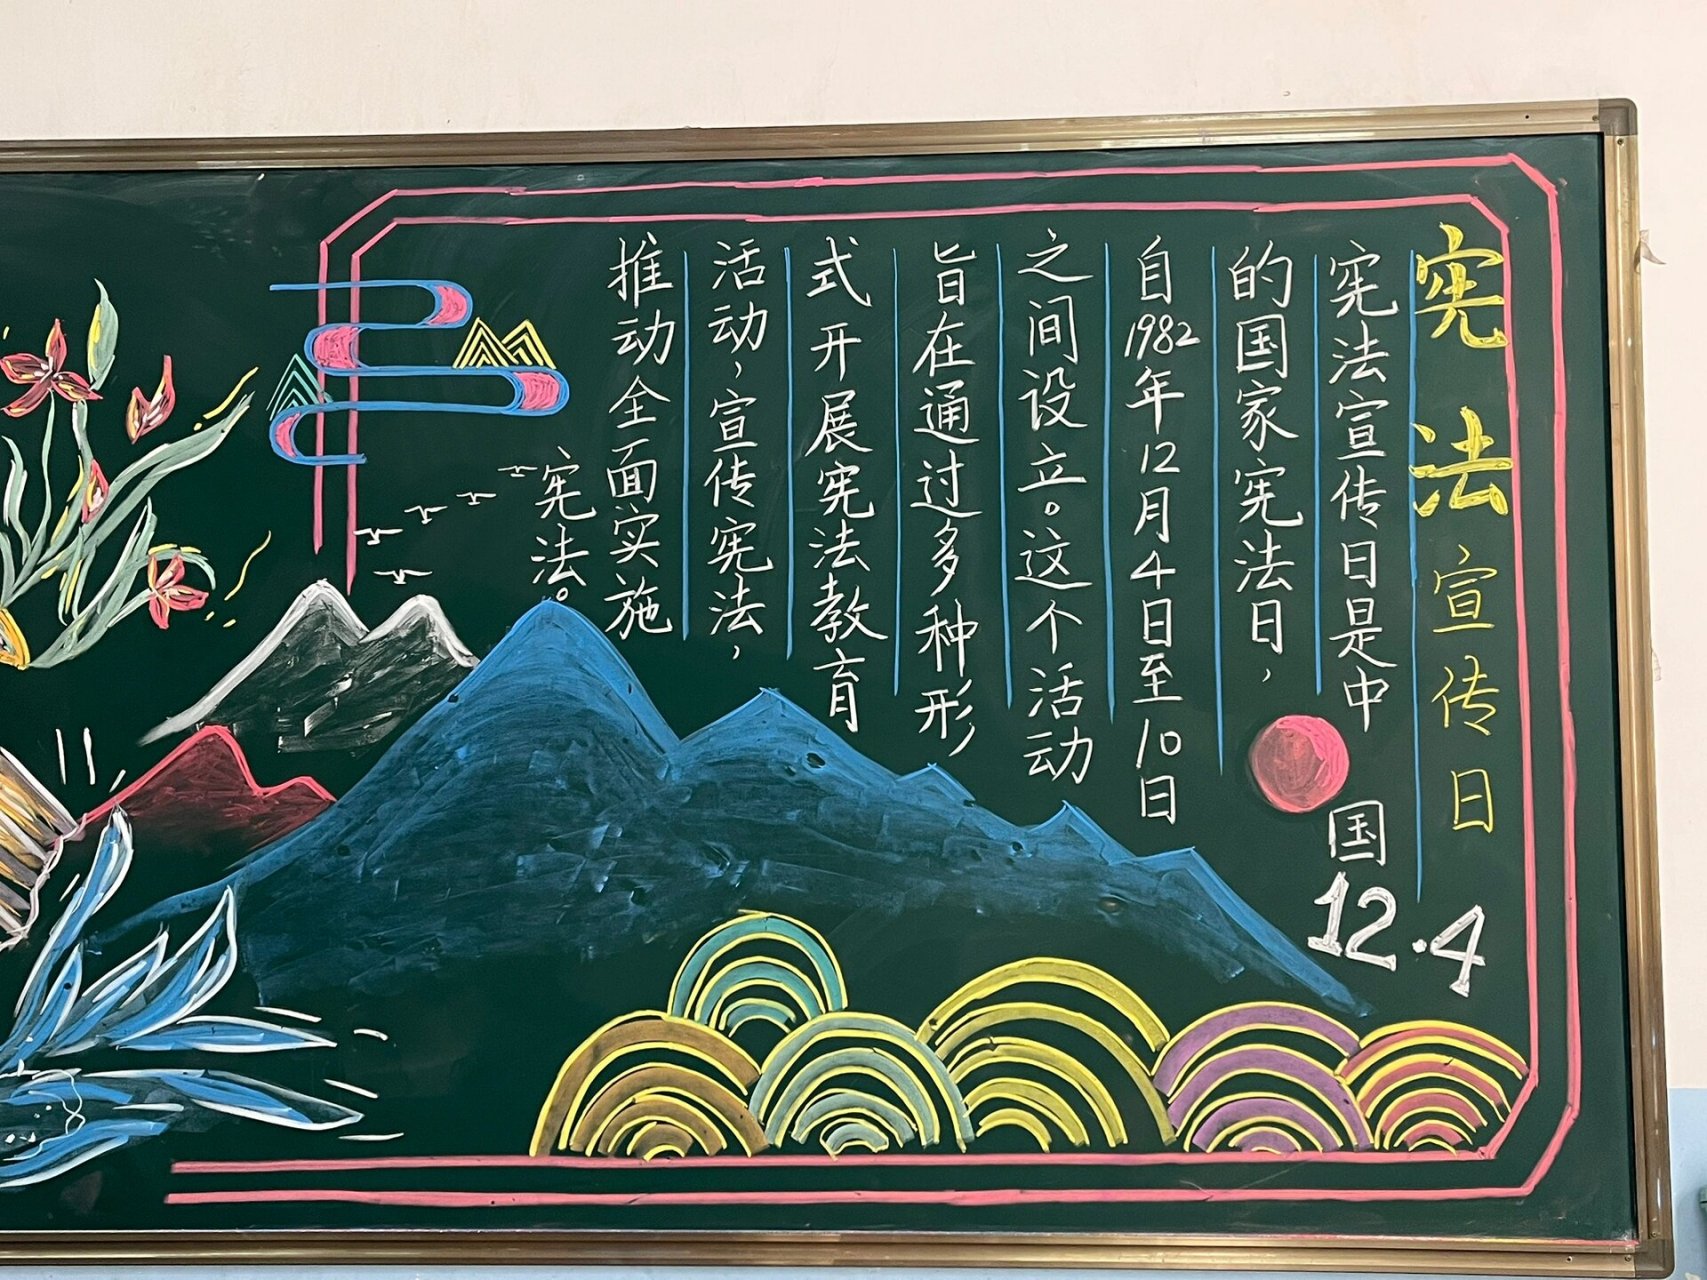 宪法宣传日
宪法宣传日是中国
的国家宪法日，
自1982年12月4日至10日
之间设立。这个活动
旨在通过多种形
式开展宪法教育
活动，宣传宪法，
推动全面实施
宪法。
12.4